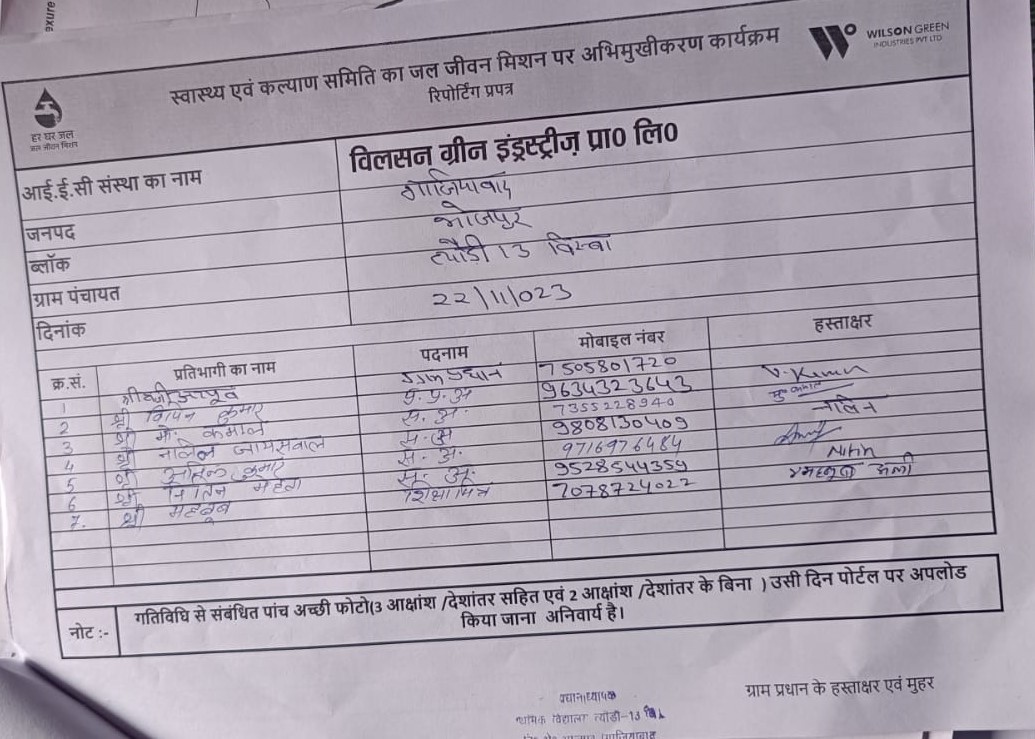 exure
स्वास्थ्य एवं कल्याण समिति का जल जीवन मिशन पर अभिमुखीकरण कार्यक्रम
रिपोर्टिंग प्रपत्र
WILSON GREEN
INDUSTRIES PVT LTD
हर घर जल
जल जीवन मिशन
आई.ई.सी संस्था का नाम विलसन ग्रीन इंड्रस्ट्रीज़ प्रा0 लि0
जनपद गाजियाबाद
ब्लॉक भोजपुर
ग्राम पंचायत त्यौडी 13 विस्वा
दिनांक 22/11/023
क्र.सं. प्रतिभागी का नाम पदनाम मोबाइल नंबर हस्ताक्षर
1 ग्राम प्रधान 7505801720
2 श्री विपिन कुमार प्र. प्र. अ 9634323643 V. Kumar
3 श्री मो. कमाल स. अ. 7355228940
4 श्री नलिन जायसवाल स. अ 9808130409 नलिन
5 श्री कुमार स. अ. 9716976484
6 श्री नितिन स. अ. 9528544359 Nitin
7. श्री महबूब शिक्षा मित्र 7078724022 अली
नोट :- गतिविधि से संबंधित पांच अच्छी फोटो(3 आक्षांश /देशांतर सहित एवं 2 आक्षांश /देशांतर के बिना ) उसी दिन पोर्टल पर अपलोड
किया जाना अनिवार्य है।
ग्राम प्रधान के हस्ताक्षर एवं मुहर
प्रधानाध्यापक
विद्यालय त्योडी-13